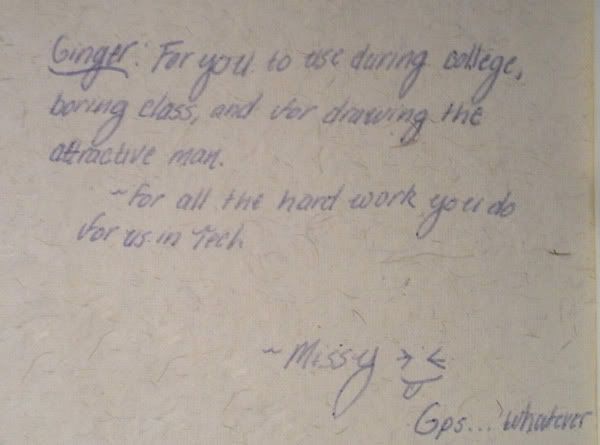 Ginger: For you to use during college,
boring class, and for drawing the
attractive man.
~For all the hard work you do
for us in Tech
~Missy >.<
Gps... whatever